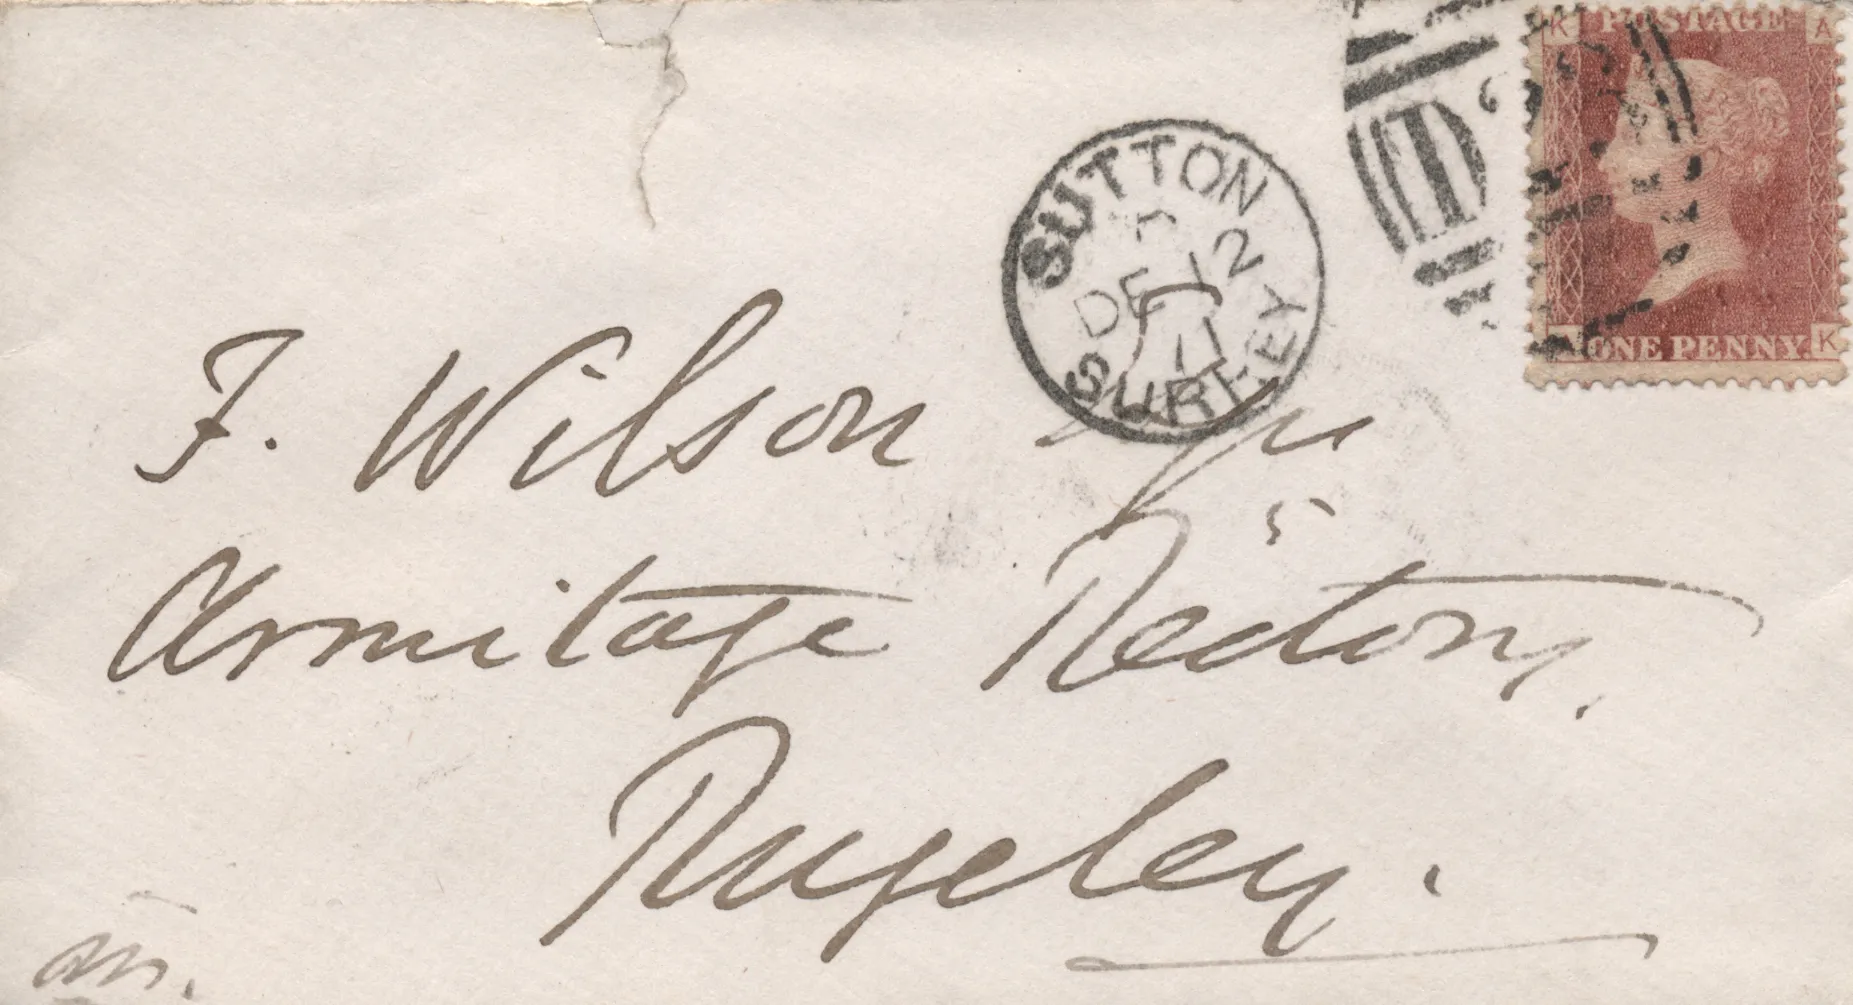 K POSTAGE A
ONE PENNY. K
SUTTON
DE 12
71
SURREY
F. Wilson Esqre
Armitage Rectory.
Rugeley.